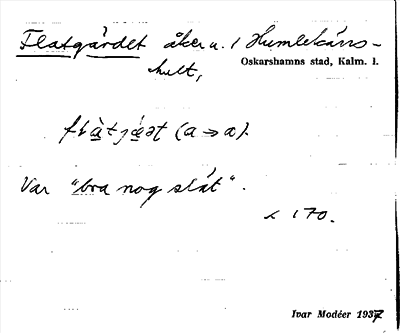 Flatgärdet åker u. / Humlekärrs-
hult,
Oskarshamns stad, Kalm. l.
(a → a).
Var "bra nog slät".
< 170.
Ivar Modéer 1937